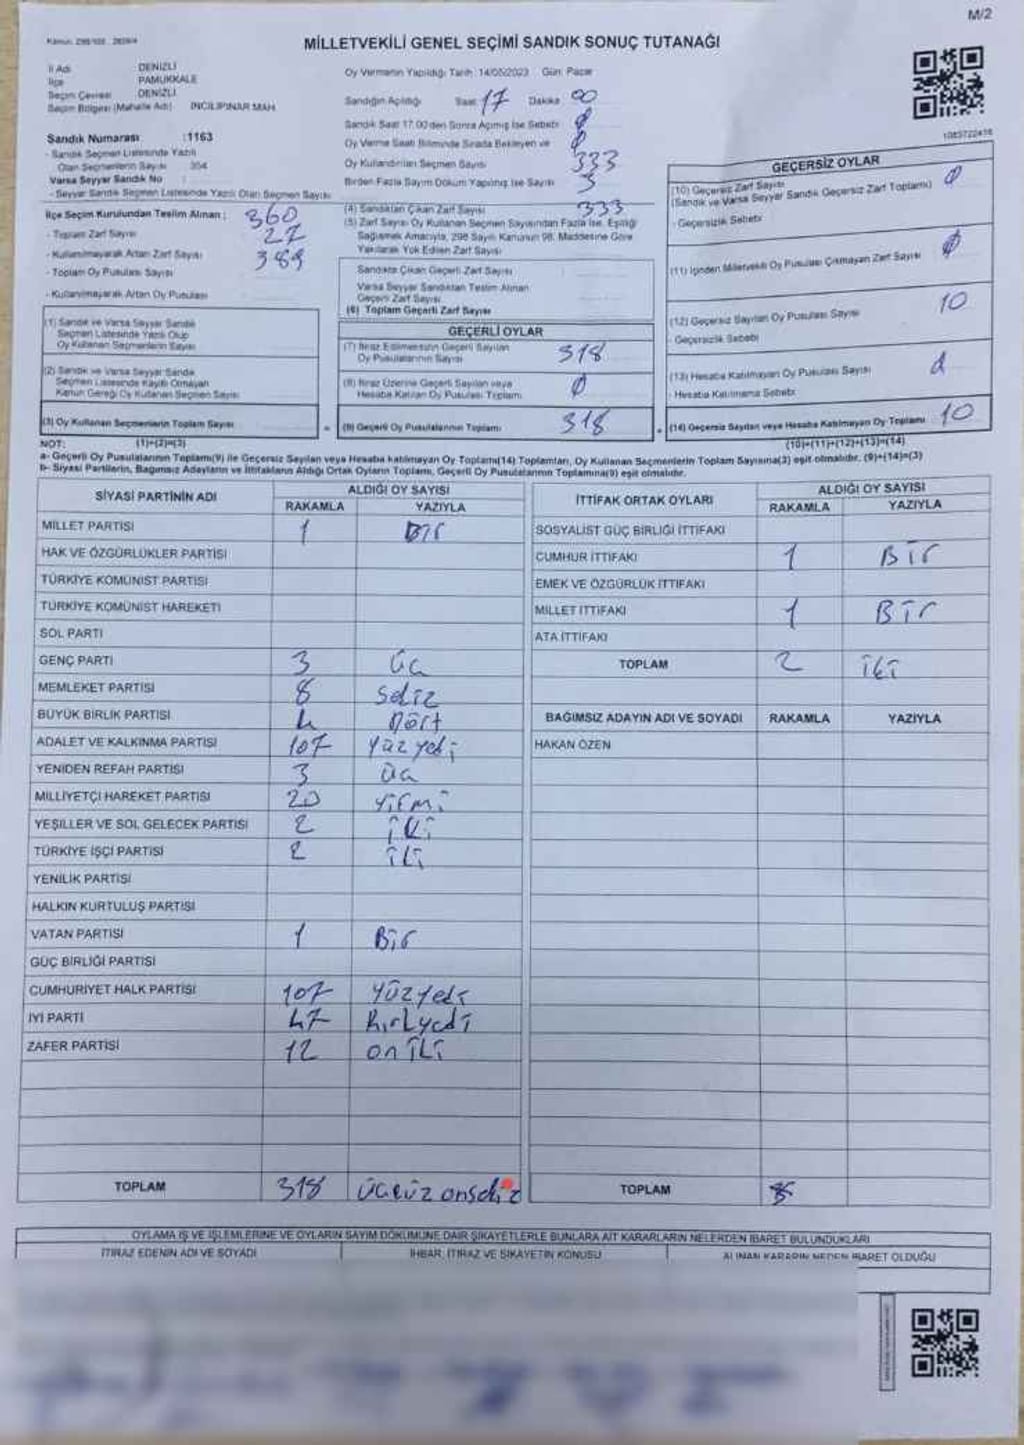 M/2
MİLLETVEKİLİ GENEL SEÇİMİ SANDIK SONUÇ TUTANAĞI
İl Adı DENİZLİ
İlçe PAMUKKALE
Seçim Çevresi DENİZLİ
Seçim Bölgesi (Mahalle Adı) İNCİLİPINAR MAH.
Sandık Numarası :1163
- Sandık Seçmen Listesinde Yazılı
Olan Seçmenlerin Sayısı 354
Varsa Seyyar Sandık No :
- Seyyar Sandık Seçmen Listesinde Yazılı Olan Seçmen Sayısı
İlçe Seçim Kurulundan Teslim Alınan : 360
- Toplam Zarf Sayısı 27
- Kullanılmayarak Artan Zarf Sayısı 389
- Toplam Oy Pusulası Sayısı
- Kullanılmayarak Artan Oy Pusulası
(1) Sandık ve Varsa Seyyar Sandık
Seçmen Listesinde Yazılı Olup
Oy Kullanan Seçmenlerin Sayısı
(2) Sandık ve Varsa Seyyar Sandık
Seçmen Listesinde Kayıtlı Olmayan
Kanun Gereği Oy Kullanan Seçmen Sayısı
(3) Oy Kullanan Seçmenlerin Toplam Sayısı
(1)+(2)=(3)
Oy Vermenin Yapıldığı Tarih: 14/05/2023 Gün: Pazar
Sandığın Açıldığı Saat 17 Dakika 00
Sandık Saat 17.00'den Sonra Açılmış İse Sebebi
Oy Verme Saati Bitiminde Sırada Bekleyen ve
Oy Kullandırılan Seçmen Sayısı 333
Birden Fazla Sayım Döküm Yapılmış İse Sayısı
(4) Sandıktan Çıkan Zarf Sayısı 333
(5) Zarf Sayısı Oy Kullanan Seçmen Sayısından Fazla İse, Eşitliği
Sağlamak Amacıyla, 298 Sayılı Kanunun 98. Maddesine Göre
Yakılarak Yok Edilen Zarf Sayısı
Sandıkta Çıkan Geçerli Zarf Sayısı
Varsa Seyyar Sandıktan Teslim Alınan
Geçerli Zarf Sayısı
(6) Toplam Geçerli Zarf Sayısı
GEÇERLİ OYLAR
(7) İtiraz Edilmeksizin Geçerli Sayılan
Oy Pusulalarının Sayısı 318
(8) İtiraz Üzerine Geçerli Sayılan veya
Hesaba Katılan Oy Pusulası Toplamı Ø
(9) Geçerli Oy Pusulalarının Toplamı 318
1083722416
GEÇERSİZ OYLAR
(10) Geçersiz Zarf Sayısı Ø
(Sandık ve Varsa Seyyar Sandık Geçersiz Zarf Toplamı)
- Geçersizlik Sebebi
(11) İçinden Milletvekili Oy Pusulası Çıkmayan Zarf Sayısı Ø
(12) Geçersiz Sayılan Oy Pusulası Sayısı 10
- Geçersizlik Sebebi
(13) Hesaba Katılmayan Oy Pusulası Sayısı
- Hesaba Katılmama Sebebi
(14) Geçersiz Sayılan veya Hesaba Katılmayan Oy Toplamı 10
(10)+(11)+(12)+(13)=(14)
NOT:
a- Geçerli Oy Pusulalarının Toplamı(9) ile Geçersiz Sayılan veya Hesaba katılmayan Oy Toplamı(14) Toplamları, Oy Kullanan Seçmenlerin Toplam Sayısına(3) eşit olmalıdır. (9)+(14)=(3)
b- Siyasi Partilerin, Bağımsız Adayların ve İttifakların Aldığı Ortak Oyların Toplamı, Geçerli Oy Pusulalarının Toplamına(9) eşit olmalıdır.
SİYASİ PARTİNİN ADI ALDIĞI OY SAYISI
RAKAMLA YAZIYLA
MİLLET PARTİSİ 1 Bir
HAK VE ÖZGÜRLÜKLER PARTİSİ
TÜRKİYE KOMÜNİST PARTİSİ
TÜRKİYE KOMÜNİST HAREKETİ
SOL PARTİ
GENÇ PARTİ 3 Üç
MEMLEKET PARTİSİ 8 Sekiz
BÜYÜK BİRLİK PARTİSİ 4 Dört
ADALET VE KALKINMA PARTİSİ 107 Yüzyedi
YENİDEN REFAH PARTİSİ 3 Üç
MİLLİYETÇİ HAREKET PARTİSİ 20 Yirmi
YEŞİLLER VE SOL GELECEK PARTİSİ 2 İki
TÜRKİYE İŞÇİ PARTİSİ 2 İki
YENİLİK PARTİSİ
HALKIN KURTULUŞ PARTİSİ
VATAN PARTİSİ 1 Bir
GÜÇ BİRLİĞİ PARTİSİ
CUMHURİYET HALK PARTİSİ 107 Yüzyedi
İYİ PARTİ 47 Kırkyedi
ZAFER PARTİSİ 12 on iki
TOPLAM 318 Üçyüz onsekiz
İTTİFAK ORTAK OYLARI ALDIĞI OY SAYISI
RAKAMLA YAZIYLA
SOSYALİST GÜÇ BİRLİĞİ İTTİFAKI
CUMHUR İTTİFAKI 1 Bir
EMEK VE ÖZGÜRLÜK İTTİFAKI
MİLLET İTTİFAKI 1 Bir
ATA İTTİFAKI
TOPLAM 2 İki
BAĞIMSIZ ADAYIN ADI VE SOYADI RAKAMLA YAZIYLA
HAKAN ÖZEN
TOPLAM
OYLAMA İŞ VE İŞLEMLERİNE VE OYLARIN SAYIM DÖKÜMÜNE DAİR ŞİKAYETLERLE BUNLARA AİT KARARLARIN NELERDEN İBARET BULUNDUKLARI
İTİRAZ EDENİN ADI VE SOYADI İHBAR, İTİRAZ VE ŞİKAYETİN KONUSU ALINAN KARARIN NEDEN İBARET OLDUĞU